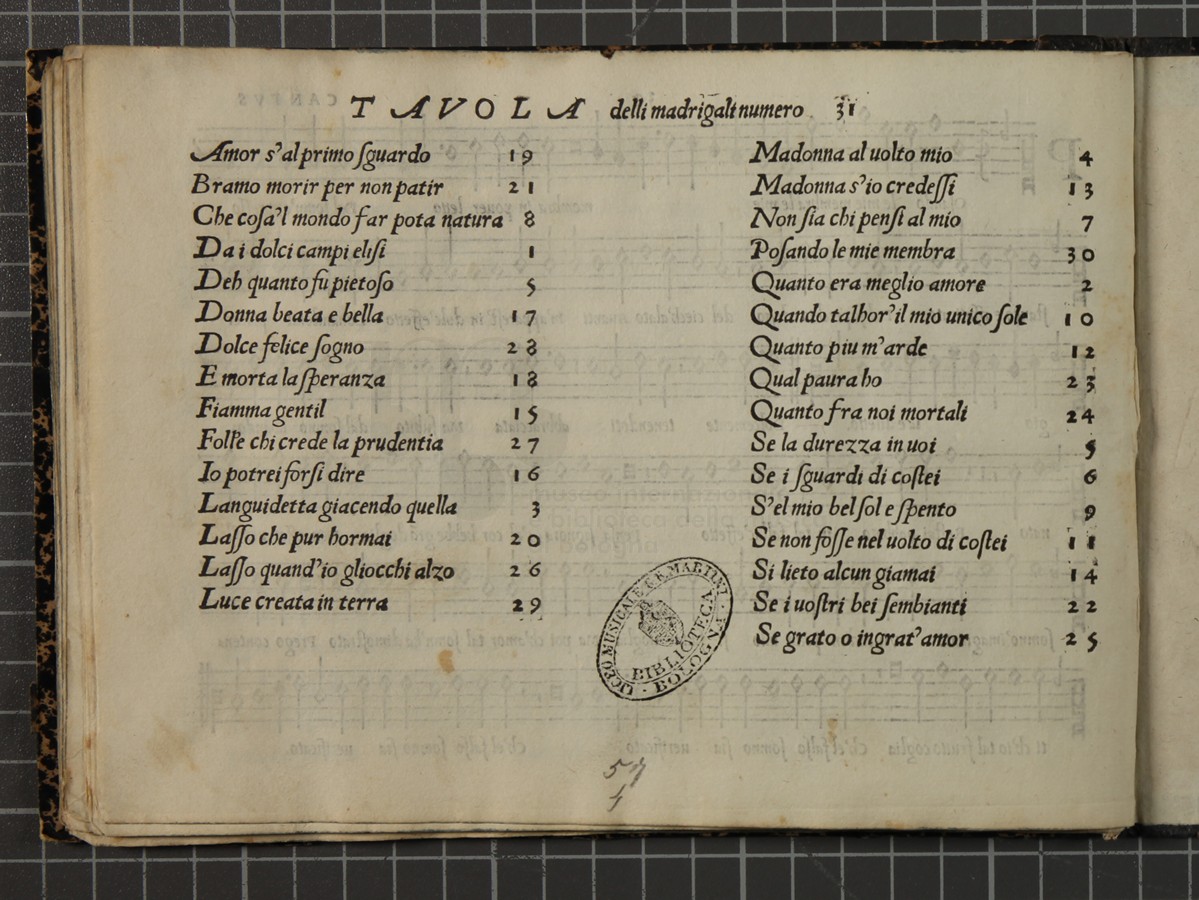 TAVOLA delli madrigali numero 31
Amor s'al primo sguardo 19
Bramo morir per non patir 21
Che cosa'l mondo far pota natura 8
Da i dolci campi elisi 1
Deh quanto fu pietoso 5
Donna beata e bella 17
Dolce felice sogno 28
E morta la speranza 18
Fiamma gentil 15
Folle chi crede la prudentia 27
Io potrei forsi dire 16
Languidetta giacendo quella 3
Lasso che pur hormai 20
Lasso quand'io gliocchi alzo 26
Luce creata in terra 29
Madonna al uolto mio 4
Madonna s'io credessi 13
Non sia chi pensi al mio 7
Posando le mie membra 30
Quanto era meglio amore 2
Quando talhor'il mio unico sole 10
Quanto piu m'arde 12
Qual paura ho 23
Quanto fra noi mortali 24
Se la durezza in uoi 5
Se i sguardi di costei 6
S'el mio bel sol e spento 9
Se non fosse nel uolto di costei 11
Si lieto alcun giamai 14
Se i uostri bei sembianti 22
Se grato o ingrat'amor 25
LICEO MUSICALE G.B. MARTINI
BIBLIOTECA
BOLOGNA
57